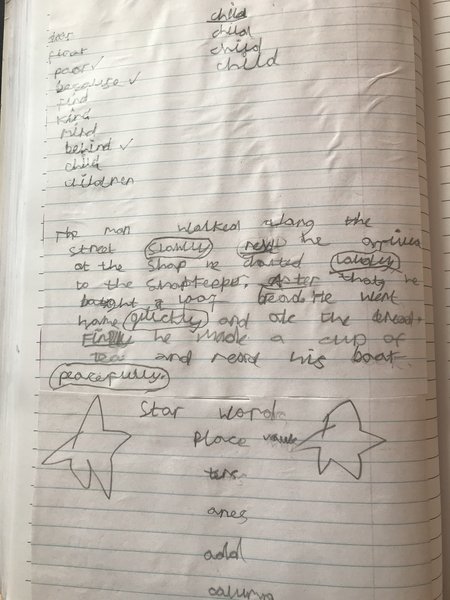 door
floor
poor ✓
because ✓
find
kind
mind
behind ✓
child
children
child
child
child
child
The man walked along the
street slowly the
at the shop he loudly
to the shopkeeper. that he
a loaf He went
home and the
Finally he made a cup of
tea and read his boat
peacefully.
Star word
Place value
tens
ones
add